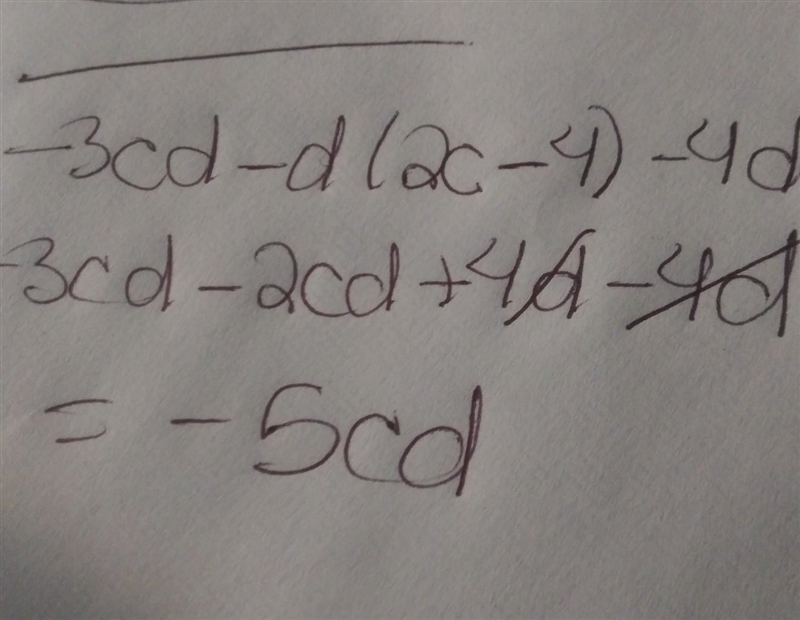 -3cd-d(2c-4)-4d
-3cd-2cd+4d-4d
=-5cd